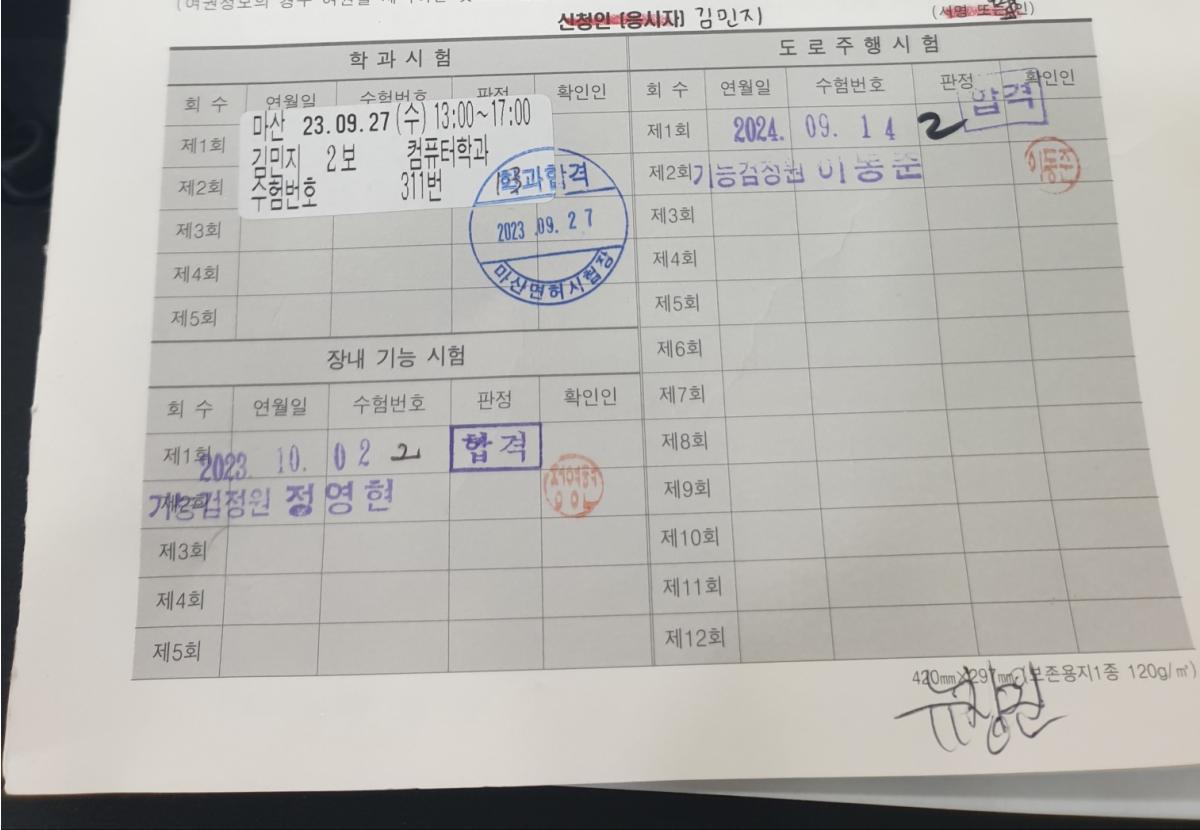 (여권정보의 경우 여권을
신청인 (응시자) 김민지 (서명 또는 인)
학 과 시 험
회 수 연월일 수험번호 판정 확인인
마산 23.09.27 (수) 13:00~17:00
김민지 2보 컴퓨터학과
수험번호 311번
제1회
제2회
제3회
제4회
제5회
학과합격
2023.09.27
마산면허시험장
장내 기능 시험
회 수 연월일 수험번호 판정 확인인
제1회 2023. 10. 02 2 합격
제2회 기능검정원 정영현
제3회
제4회
제5회
도 로 주 행 시 험
회 수 연월일 수험번호 판정 확인인
제1회 2024. 09. 14 2 합격
제2회 기능검정원 이동준
제3회
제4회
제5회
제6회
제7회
제8회
제9회
제10회
제11회
제12회
420㎜×297㎜(보존용지1종 120g/㎡)